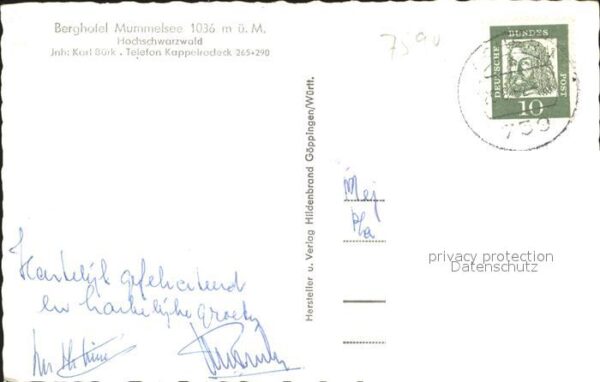 Berghotel Mummelsee 1036 m ü. M.
Hochschwarzwald
Jnh: Karl Bürk . Telefon Kappelrodeck 265+290
7590
DEUTSCHE BUNDES POST
10
759
Hersteller u. Verlag Hildenbrand Göppingen/Württ.
Mej
privacy protection
Datenschutz
Hartelijk gefeliciteerd
en hartelijke groeten